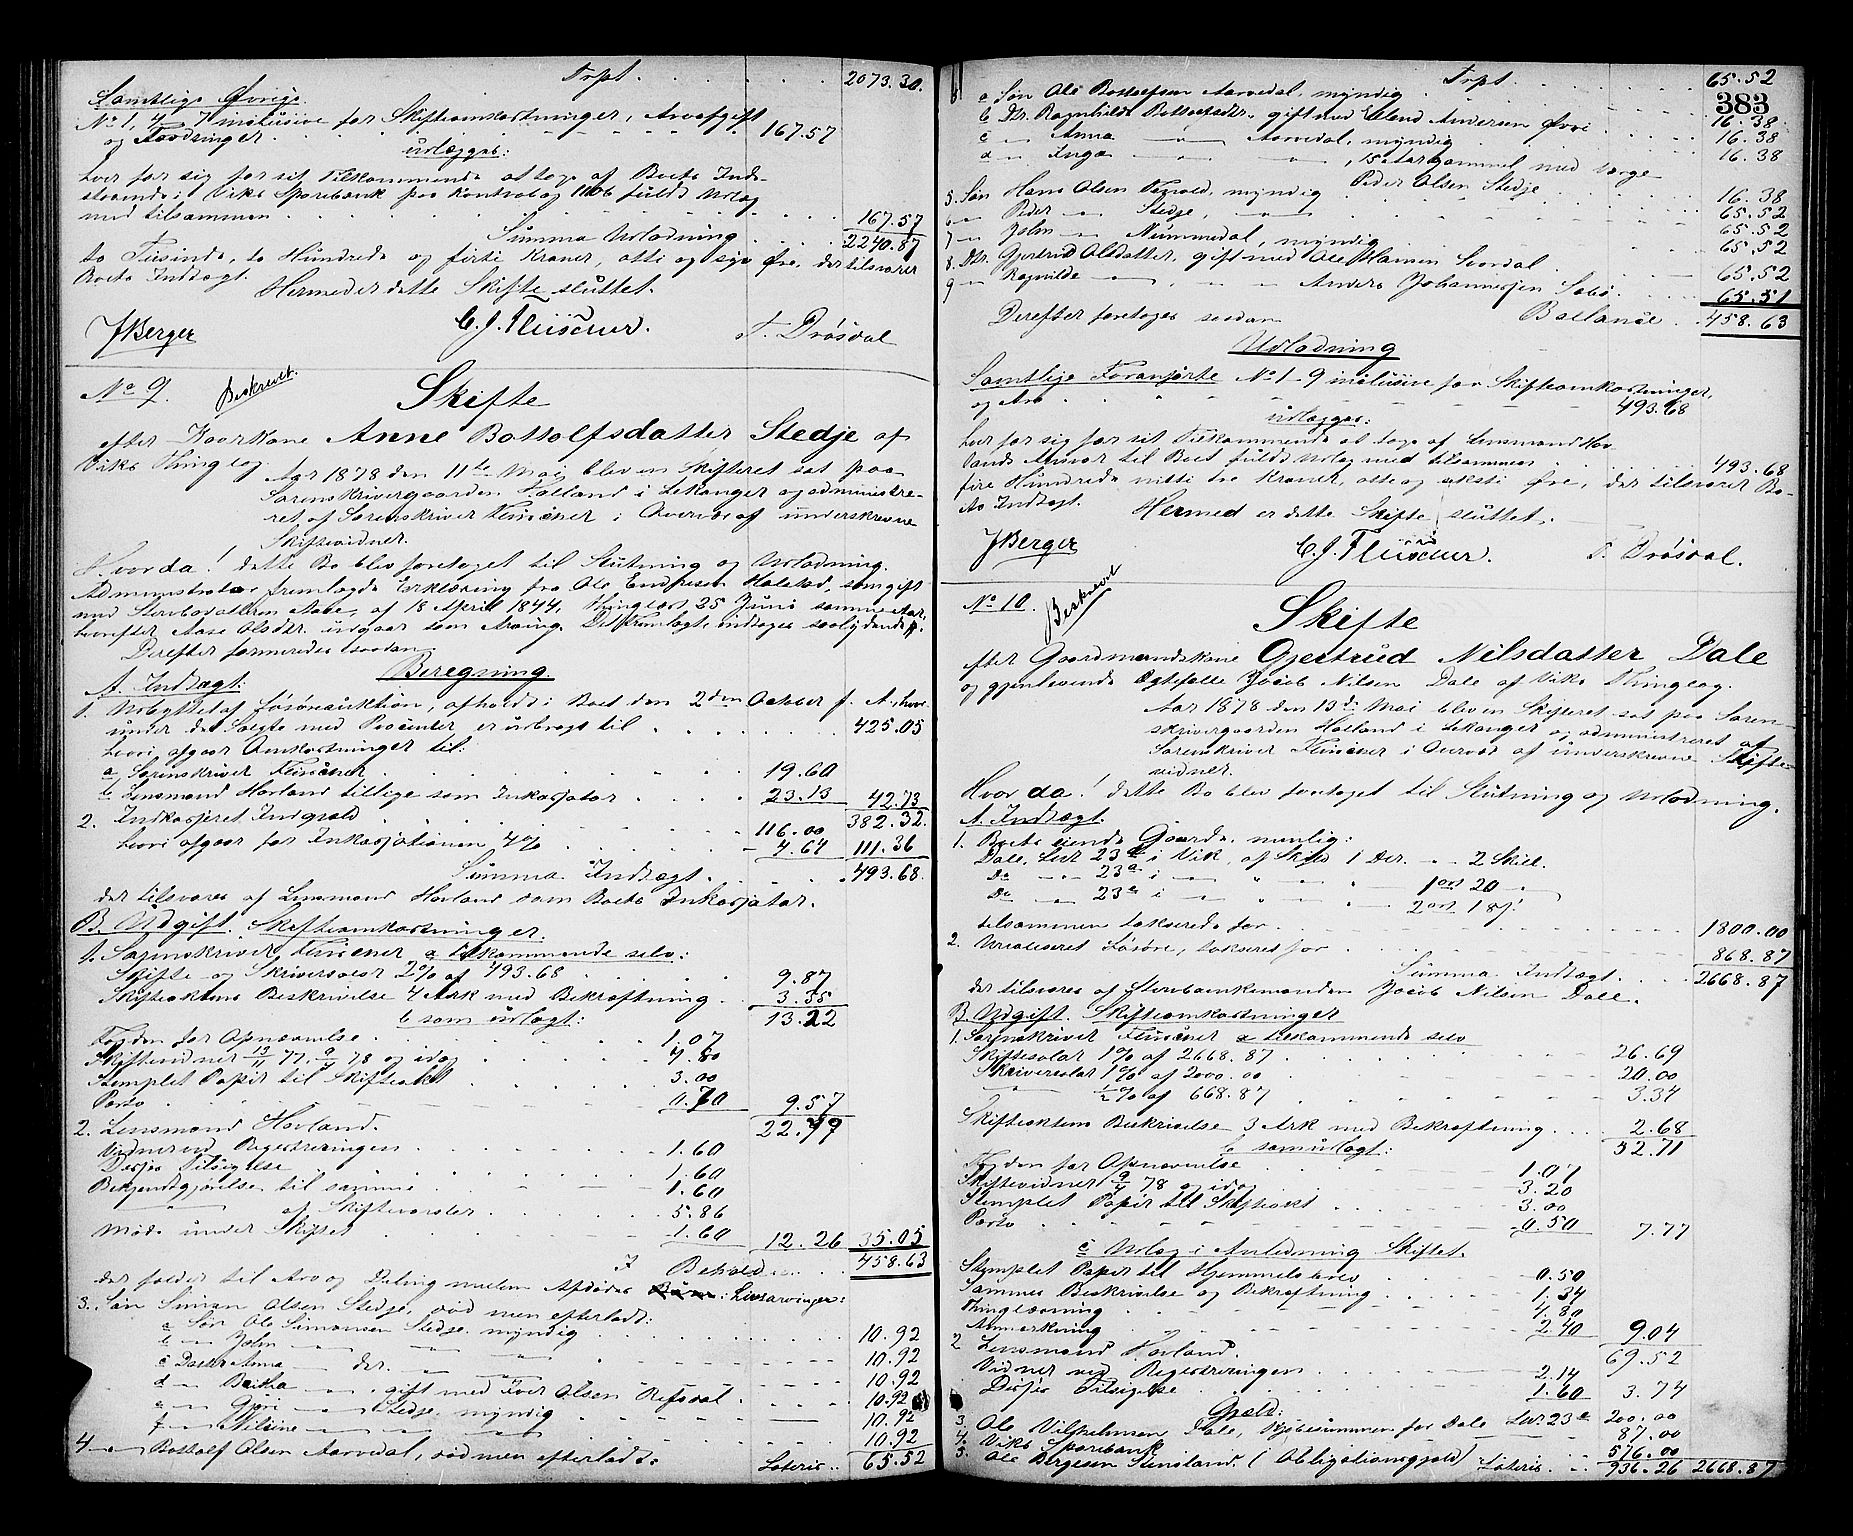 Trpt. 2073.30.
Samtlige Øvrige
No 1, 4 - 7 inclusive for Skifteomkostninger, Arveafgift
og Fordringer 167.57
udlægges:
hver for sig for sit Tilkommende at tage af Boets Inde-
staaende i Viks Sparebank paa Kontrabog 1106 fuldt Udlæg
med tilsammen 167.57
Summa Udlodning 2240.87
to Tusinde, to Hundrede og firti Kroner, otti og syv Øre, der tilsvarer
Boets Indtægt.
Hermed er dette Skifte sluttet.
J Berger C. J. Fleischer. T. Drøsdal
No 9. Beskrevet.
Skifte
efter Kaarkone Anne Bottolfsdatter Stedje af
Viks Thinglag.
Aar 1878 den 11te Mai blev en Skifteret sat paa
Sorenskrivergaarden Holland i Lekanger og administre-
ret af Sorenskriver Fleischer i Overvær af underskrevne
Skiftevidner.
Hvor da! dette Bo blev foretaget til Slutning og Udlodning.
Administrator fremlagde Erklæring fra Ole Endresen Halstad, som gift
med Sterbodatteren Aase, af 18 April 1844, thinglæst 25 Juni samme Aar,
hvorefter Aase Olsdtr. udgaar som Arving. Det fremlagte indtages saalydende
Derefter formeredes saadan
Beregning.
A. Indtægt:
1. Udbyttet af Løsøreauktion, afholdt i Boet den 2den October f. A., hvor-
under de Solgte med Procenter er udbragt til 425.05
hvori afgaar Omkostninger til:
a Sorenskriver Fleischer 19.60
b Lensmand Hovland tillige som Inkassator 23.13 42.73
382.32.
2. Indkasseret Indgjæld 116.00
hvori afgaar for Inkassationen 4% 4.64 111.36
Summa Indtægt. 493.68.
der tilsvares af Lensmand Hovland som Boets Inkassator.
B. Udgift. Skifteomkostninger.
1. Sorenskriver Fleischer a tilkommende selv:
Skifte og Skriversalær 2% af 493.68 9.87
Skifteaktens Beskrivelse 4 Ark med Bekræftning 3.35
b som udlagt: 13.22
Fogden for Opnævnelse 1.07
Skiftevidner 13/11 77, 9/4 78 og idag 4.80
Stemplet Papir til Skifteakt 3.00
Porto 0.70 9.57
22.79
2. Lensmand Hovland.
Vidner ved Registreringen 1.60
Disses Tilsigelse 1.60
Bekjendtgjørelse til samme 1.60
" af Skiftevarsler 5.86
Møde under Skiftet 1.60 12.26 35.05
I Behold 458.63
der falder til Arv og Deling mellem Afdødes Livsarvinger:
3. Søn Simon Olsen Stedje, død men efterladt:
a Søn Ole Simonsen Stedje, myndig 10.92
b " John " 10.92
c Datter Anna " 10.92
d " Brita " gift med Iver Olsen Refsdal 10.92
e " Guri " Stedje, myndig 10.92
f " Nilsine " 10.92
4 " Bottolf Olsen Aarvedal, død men efterladt Lateris 65.52
Trpt. 65.52
383
a Søn Ole Bottolfsen Aarvedal, myndig 16.38
b Dtr. Ragnhilde Bottolfsdtr., gift med Erland Andersen Øvri 16.38
c " Anna " Aarvedal, myndig 16.38
d " Inga " " , 15 Aar gammel med Værge
Peder Olsen Stedje 16.38
5. Søn Hans Olsen myndig 65.52
6 " Peder " Stedje, " 65.52
7 " John " Nummedal, myndig 65.52
8. Dtr. Gjertrud Olsdatter, gift med Ole Hansen 65.52
9 " Ragnilde " , " Anders Johannesen Sæbø. 65.51
Derefter foretages saadan Ballance 458.63
Udlodning
Samtlige Foranførte No 1-9 inclusive for Skifteomkostninger,
og Arv 493.68
udlægges:
hver for sig for sit Tilkommende at tage af Lensmand Hov
lands Ansvar til Boet fuldt Udlæg med tilsammen 493.68
fire Hundrede nitti tre Kroner, otte og seksti Øre, der tilsvarer Bo-
ets Indtægt.
Hermed er dette Skifte sluttet.
J Berger C. J. Fleischer. T. Drøsdal.
No 10. Beskrevet
Skifte
efter Gaardmandskone Gjertrud Nilsdatter Dale
og gjenlevende Ægtefælle Jacob Nilsen Dale af Viks Thinglag.
Aar 1878 den 13de Mai blev en Skifteret sat paa Soren-
skrivergaarden Holland i Lekanger og administreret af
Sorenskriver Fleischer i Overvær af underskrevne Skifte-
vidner.
Hvor da! dette Bo blev foretaget til Slutning og Udlodning.
A. Indtægt.
1. Boets eiende Gaarde, nemlig:
Dale, Lnr 23 i Vik, af Skyld 1 Der. - - 2 Skil.
Do " - 23a i " " " 1 ort 20 "
Do " - 23e i " " " 2 ort 18
tilsammen takserede for 1800.00
2. Urealiseret Løsøre, takseret for 868.87
Summa Indtægt. 2668.87
der tilsvares af Sterboenkemanden Jacob Nilsen Dale.
B. Udgift. Skifteomkostninger
1. Sorenskriver Fleischer a tilkommende selv
Skiftesalær 1% af 2668.87 26.69
Skriversalær 1% af 2000.00 20.00
" 1/2 % af 668.87 3.34
Skifteaktens Beskrivelse 3 Ark med Bekræftning 2.68
b som udlagt: 52.71
Fogden for Opnævnelse 1.07
Skiftevidner 9/4 78 og idag 3.20
Stemplet Papir til Skifteakt 3.00
Porto 0.50 7.77
c Udlæg i Anledning Skiftet.
Stemplet Papir til Hjemmelsbrev 0.50
Sammes Beskrivelse og Bekræftning 1.34
Thinglæsning 4.80
Anmerkning 2.40 9.04
2 Lensmand Hovland. 69.52
Vidner ved Registreringen 2.14
Disses Tilsigelse 1.60 3.74
Gjæld:
3. Ole Vilhelmsen Dale, Kjøbesummen for Dale Lnr 23e 200.00
4. Viks Sparebank 87.00
5. Ole Børgesen (Obligationsgjæld) 576.00
Lateris 936.26 2668.87